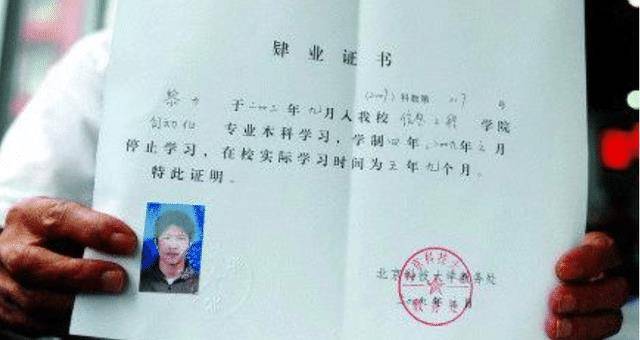 肄业证书
(2009)科教第 217 号
黎力 于二〇〇二年九月入我校信息工程学院
自动化 专业本科学习，学制四年，2009年三月
停止学习，在校实际学习时间为五年九个月。
特此证明。
北京科技大学教务处
二〇〇九年 月